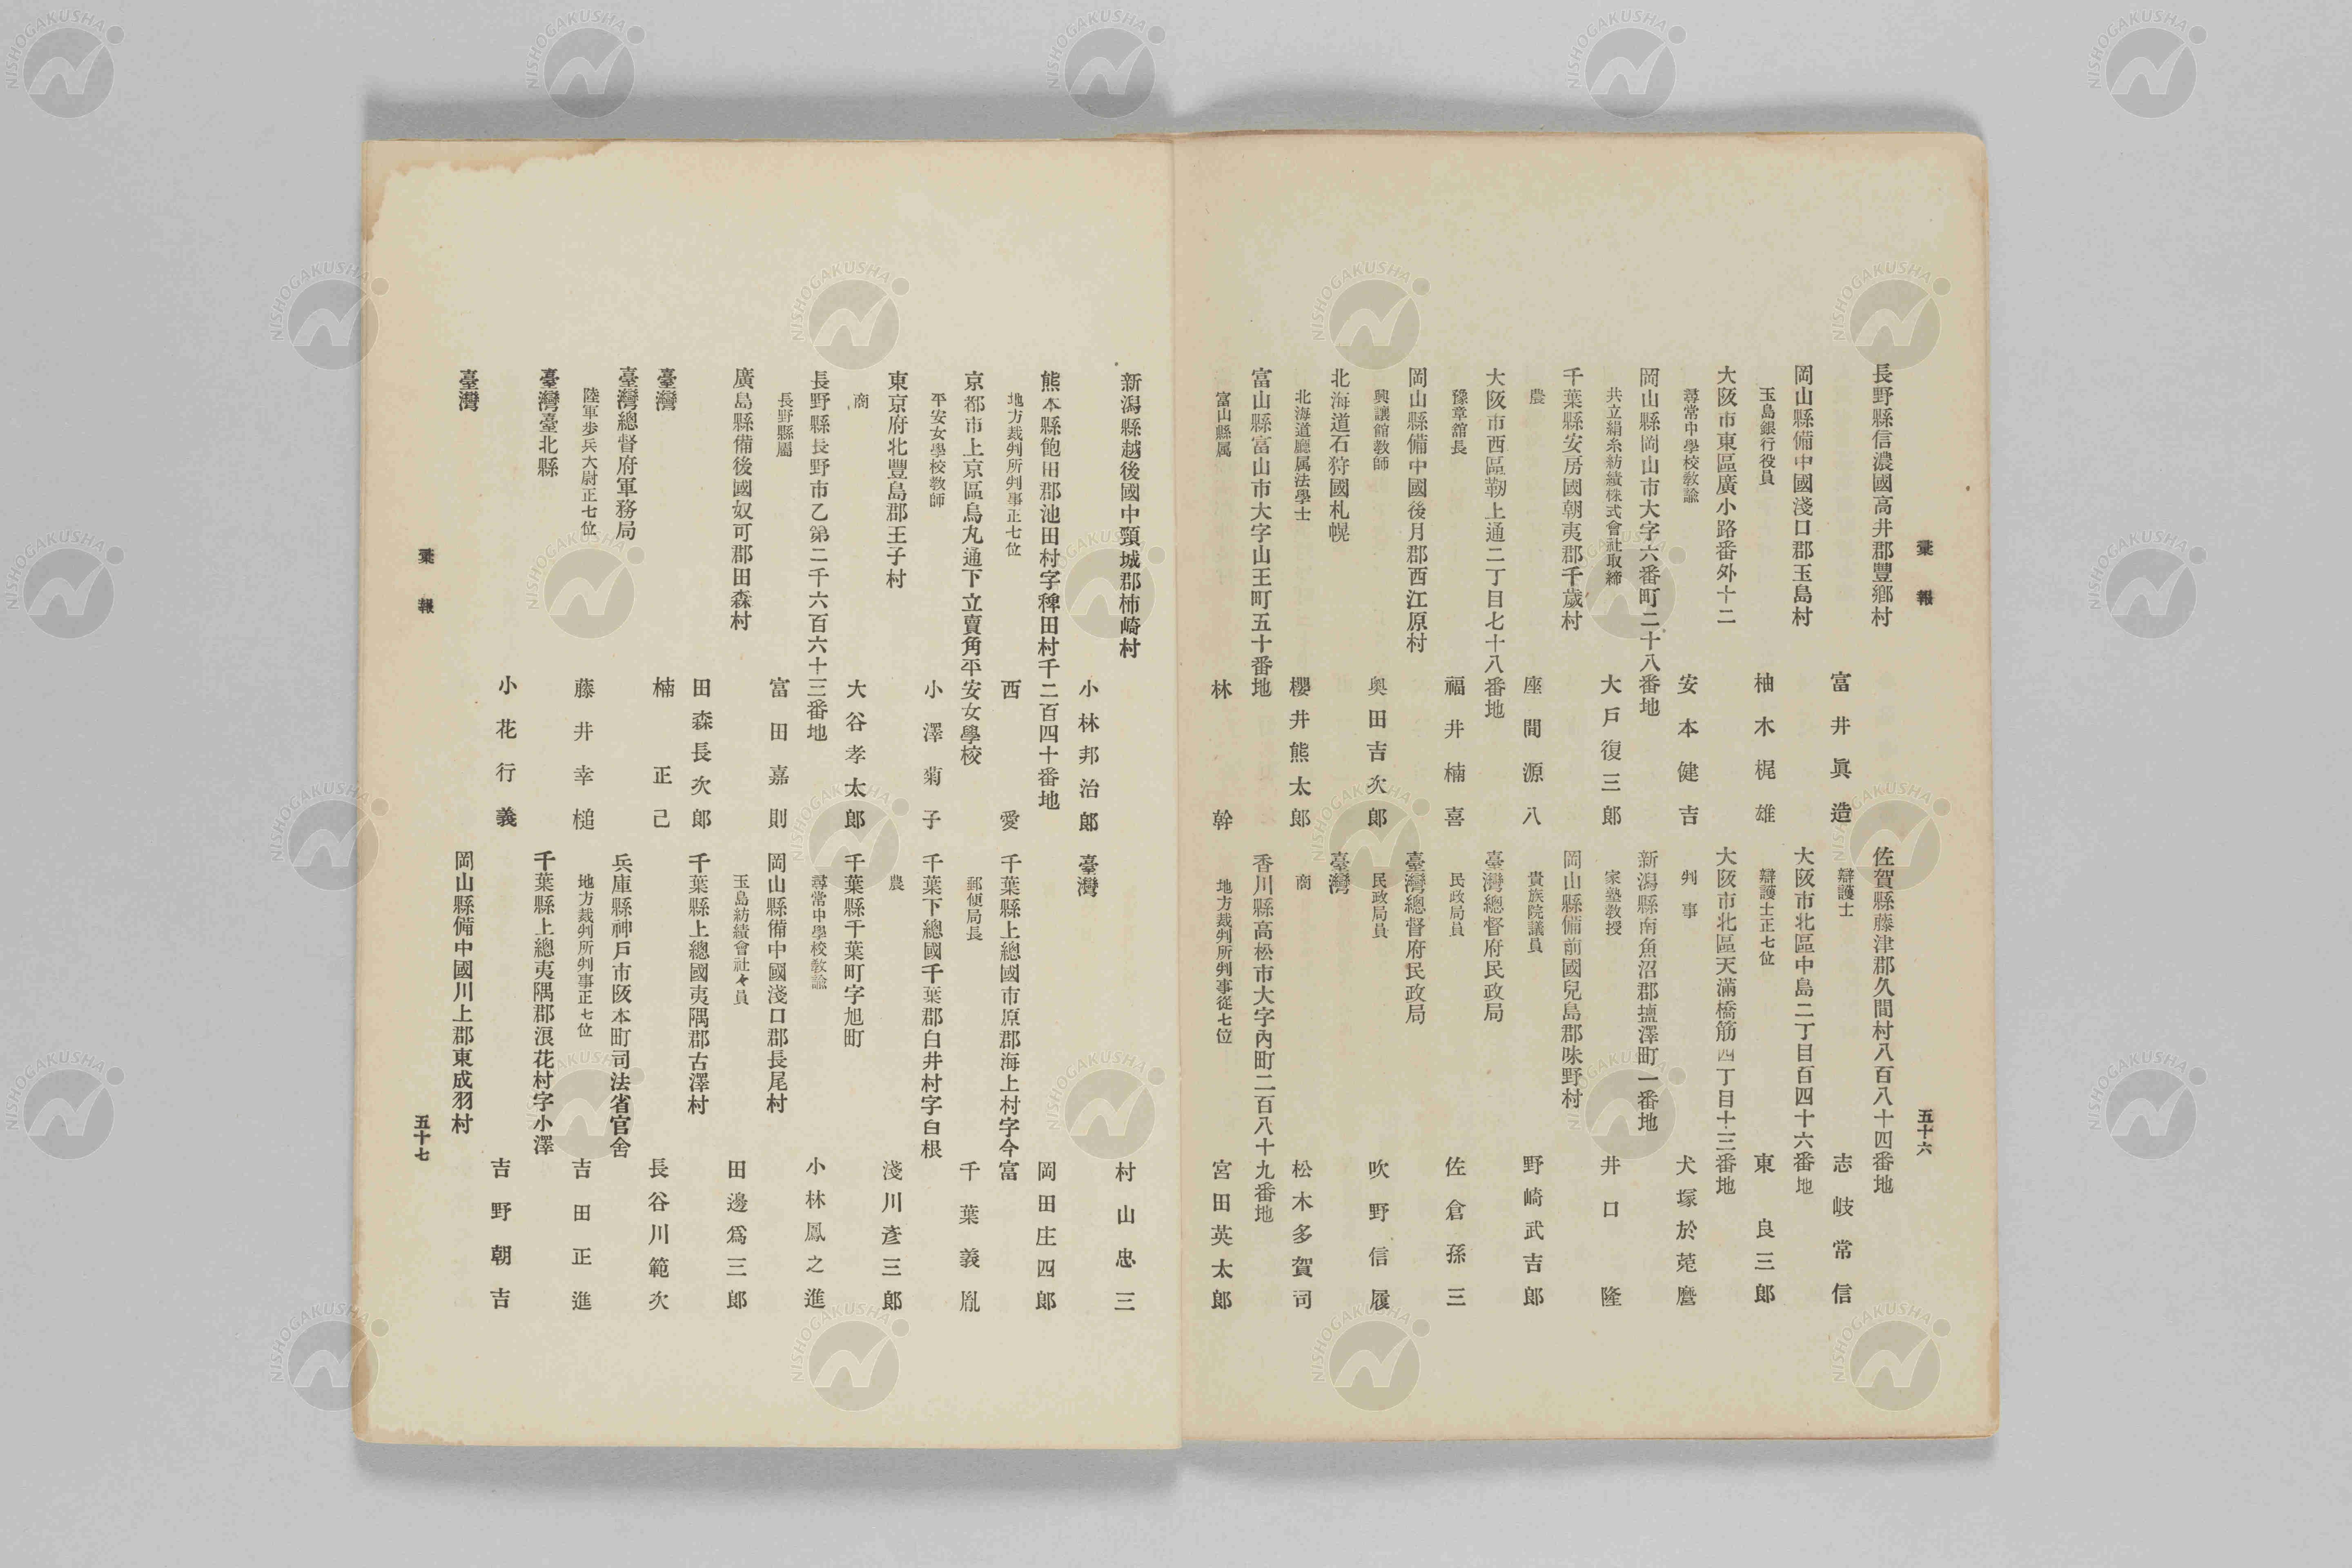 彙報
五十六
長野縣信濃國高井郡豐鄉村
富井眞造
岡山縣備中國淺口郡玉島村
玉島銀行役員 柚木梶雄
大阪市東區廣小路番外十二
尋常中學校教諭 安本健吉
岡山縣岡山市大字六番町二十八番地
共立絹糸紡績株式會社取締 大戸復三郎
千葉縣安房國朝夷郡千歲村
農 座間源八
大阪市西區靭上通二丁目七十八番地
豫章舘長 福井楠喜
岡山縣備中國後月郡西江原村
興讓館教師 奥田吉次郎
北海道石狩國札幌
北海道廳属法學士 櫻井熊太郎
富山縣富山市大字山王町五十番地
富山縣属 林幹
佐賀縣藤津郡久間村八百八十四番地
辯護士 志岐常信
大阪市北區中島二丁目百四十六番地
辯護士正七位 東良三郎
大阪市北區天滿橋筋四丁目十三番地
判事 犬塚於菟麿
新潟縣南魚沼郡塩澤町一番地
家塾教授 井口隆
岡山縣備前國兒島郡味野村
貴族院議員 野崎武吉郎
臺灣總督府民政局
民政局員 佐倉孫三
臺灣總督府民政局
民政局員 吹野信履
臺灣
商 松木多賀司
香川縣高松市大字內町二百八十九番地
地方裁判所判事從七位 宮田英太郎
新潟縣越後國中頸城郡柿崎村
小林邦治郎
熊本縣飽田郡池田村字稗田村千二百四十番地
地方裁判所判事正七位 西愛
京都市上京區烏丸通下立賣角平安女學校
平安女學校教師 小澤菊子
東京府北豐島郡王子村
商 大谷孝太郎
長野縣長野市乙第二千六百六十三番地
長野縣屬 富田嘉則
廣島縣備後國奴可郡田森村
田森長次郎
臺灣
楠正己
臺灣總督府軍務局
陸軍歩兵大尉正七位 藤井幸槌
臺灣臺北縣
小花行義
臺灣
村山忠三
臺灣
岡田庄四郎
千葉縣上總國市原郡海上村字今富
郵便局長 千葉義胤
千葉下總國千葉郡白井村字白根
農 淺川彥三郎
千葉縣千葉町字旭町
尋常中學校教諭 小林鳳之進
岡山縣備中國淺口郡長尾村
玉島紡績會社々員 田邊爲三郎
千葉縣上總國夷隅郡古澤村
長谷川範次
兵庫縣神戸市阪本町司法省官舍
地方裁判所判事正七位 吉田正進
千葉縣上總夷隅郡浪花村字小澤
吉野朝吉
岡山縣備中國川上郡東成羽村
彙報
五十七
NISHOGAKUSHA